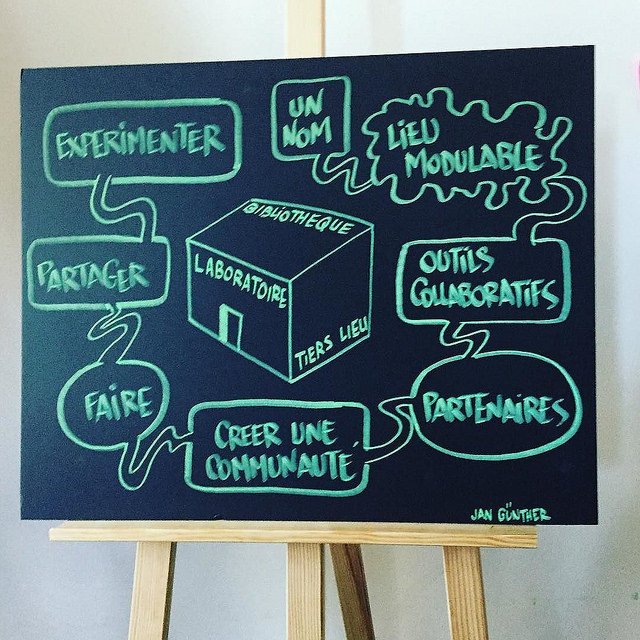 EXPERIMENTER
UN
NOM
LIEU
MODULABLE
PARTAGER
BIBLIOTHEQUE
LABORATOIRE
TIERS LIEU
OUTILS
COLLABORATIFS
FAIRE
CREER UNE
COMMUNAUTÉ
PARTENAIRES
JAN GÜNTHER